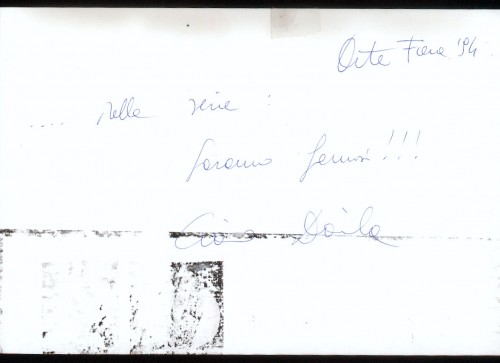 Arte Fiera '94
.... nella serie :
Saranno famosi!!!
Ciao